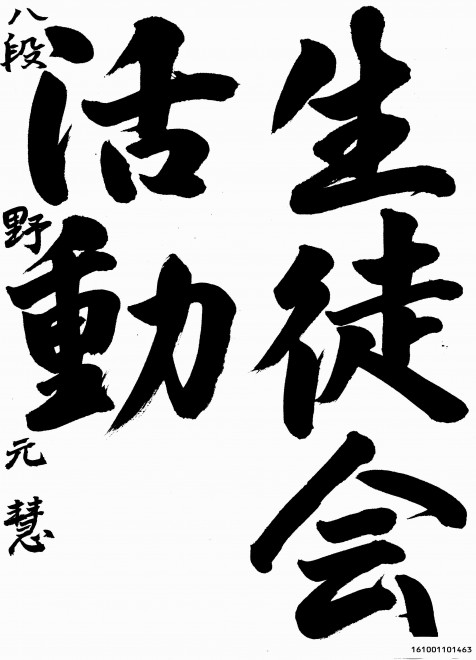 生徒会
活動
八段 野元慧
161001101463